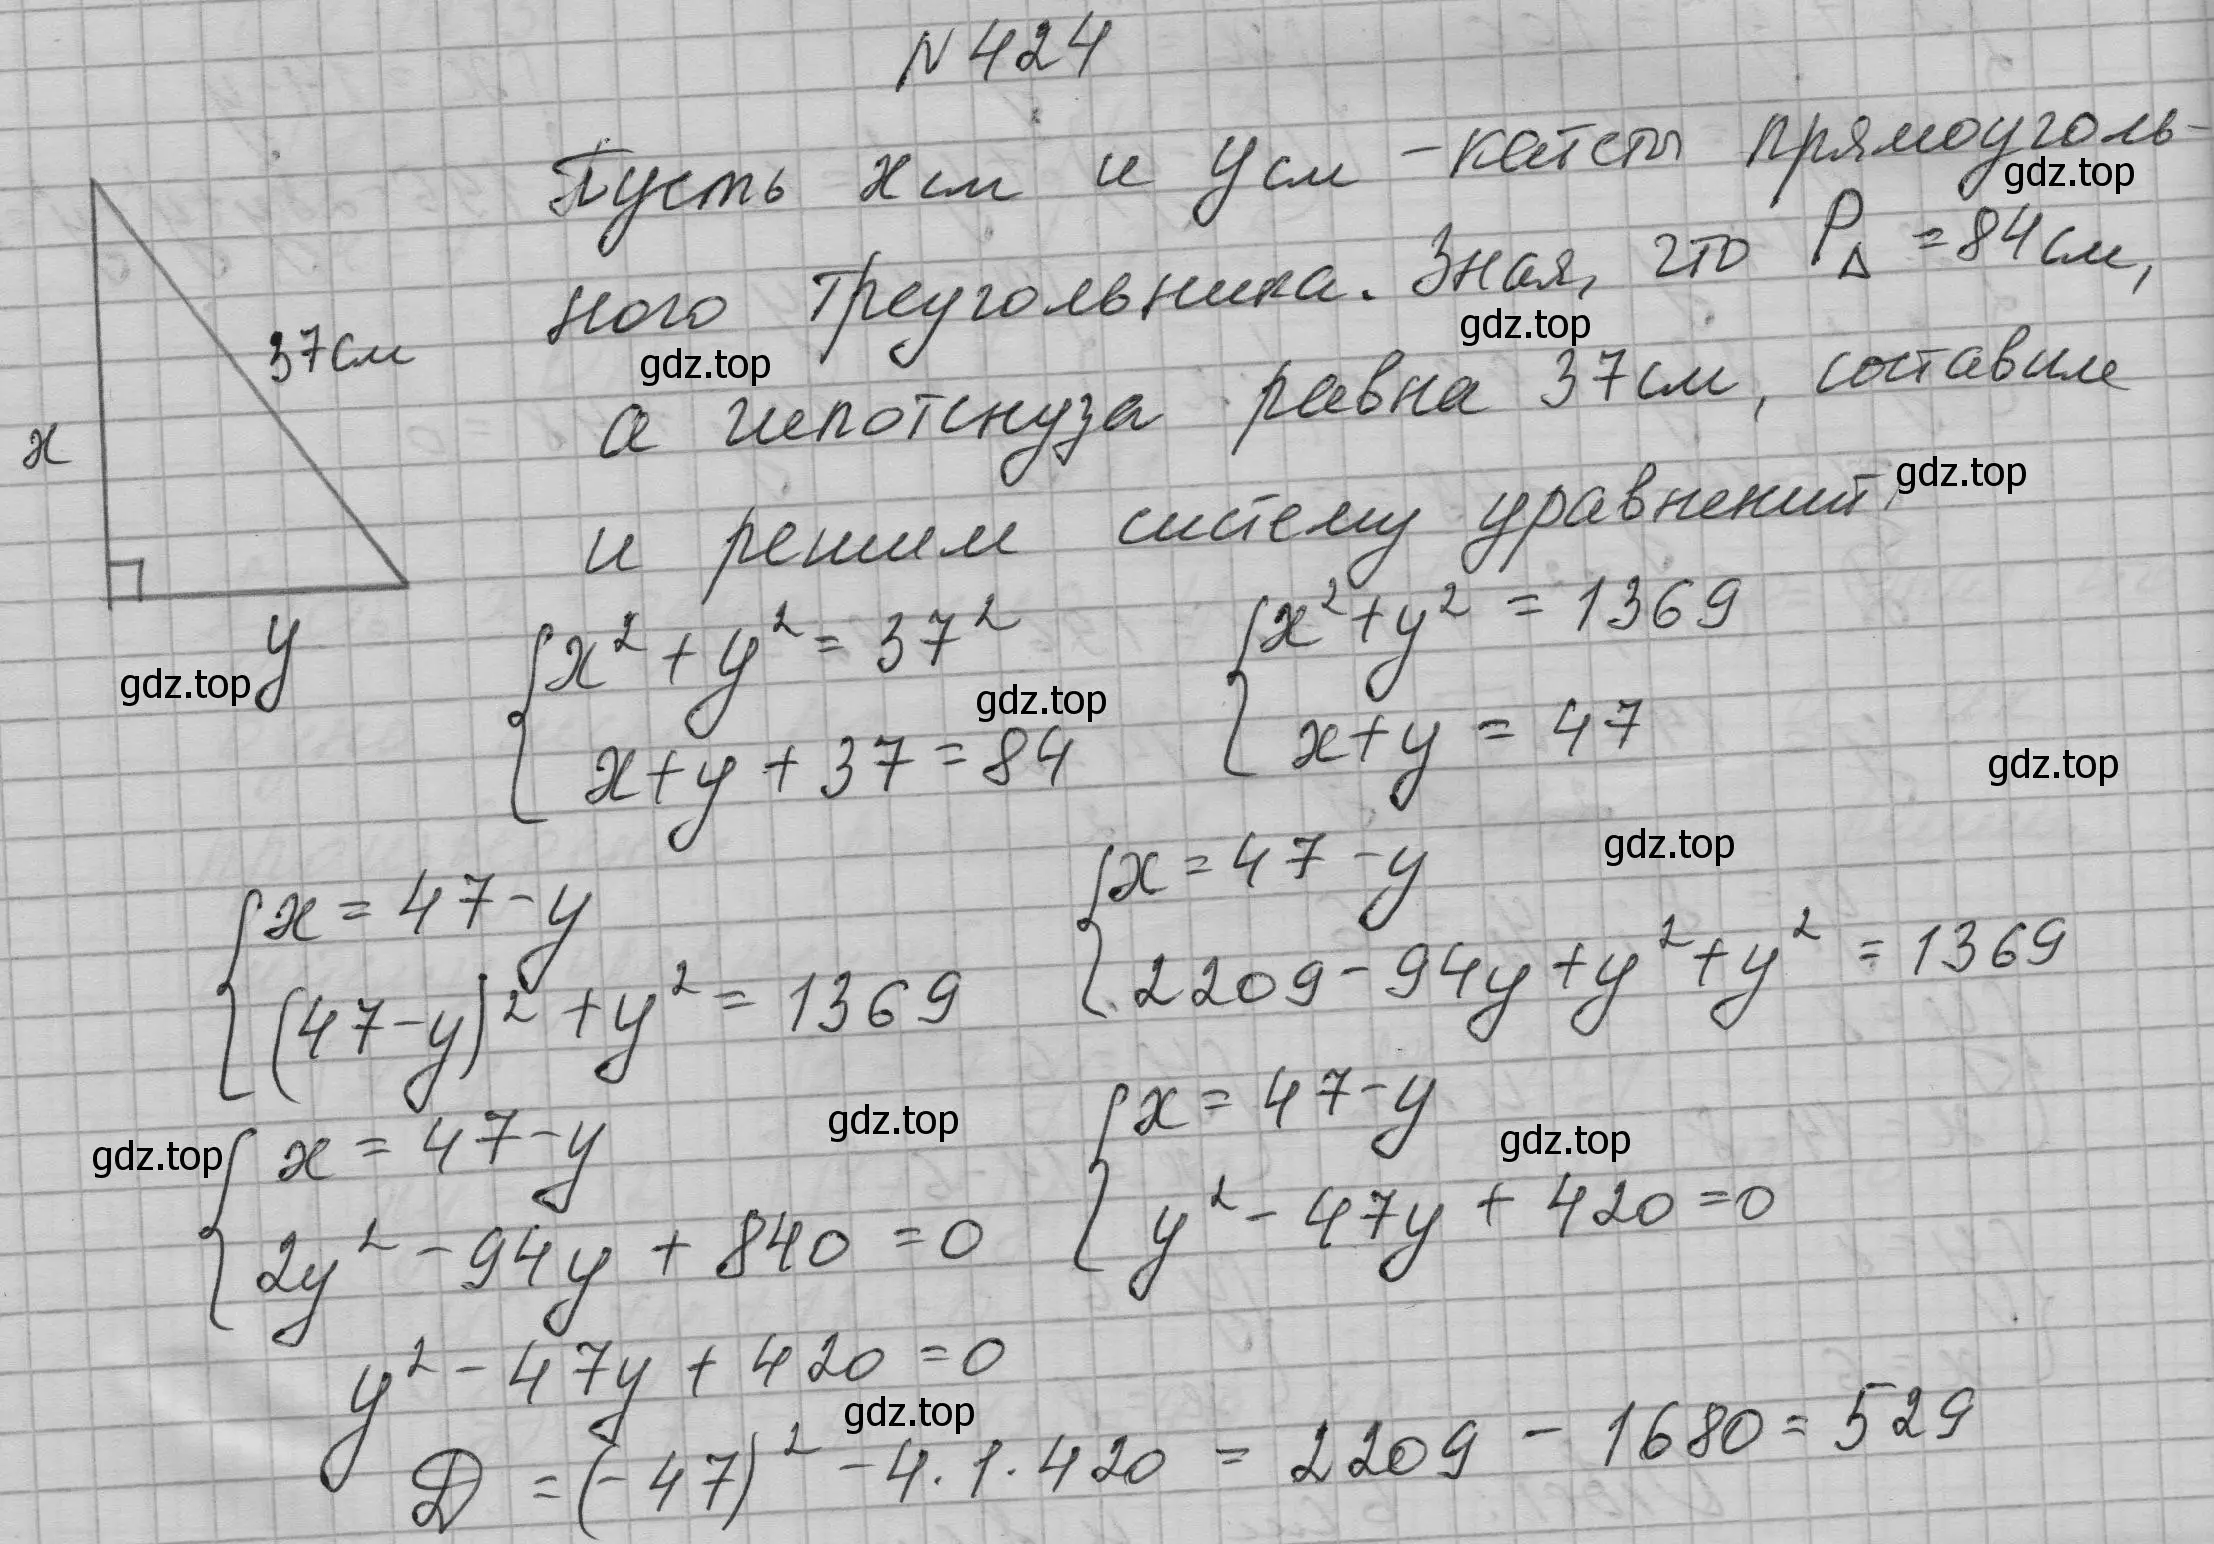 N 424
Пусть x см и y см – катеты прямоуголь-
ного треугольника. Зная, что P△ = 84 см,
а гипотенуза равна 37 см, составим
и решим систему уравнений.
37 см
x
y
{ x² + y² = 37²   { x² + y² = 1369
{ x + y + 37 = 84   { x + y = 47
{ x = 47 - y   { x = 47 - y
{ (47 - y)² + y² = 1369   { 2209 - 94y + y² + y² = 1369
{ x = 47 - y   { x = 47 - y
{ 2y² - 94y + 840 = 0   { y² - 47y + 420 = 0
y² - 47y + 420 = 0
D = (-47)² - 4 · 1 · 420 = 2209 - 1680 = 529
gdz.top
gdz.top
gdz.top
gdz.top
gdz.top
gdz.top
gdz.top
gdz.top
gdz.top
gdz.top
gdz.top
gdz.top